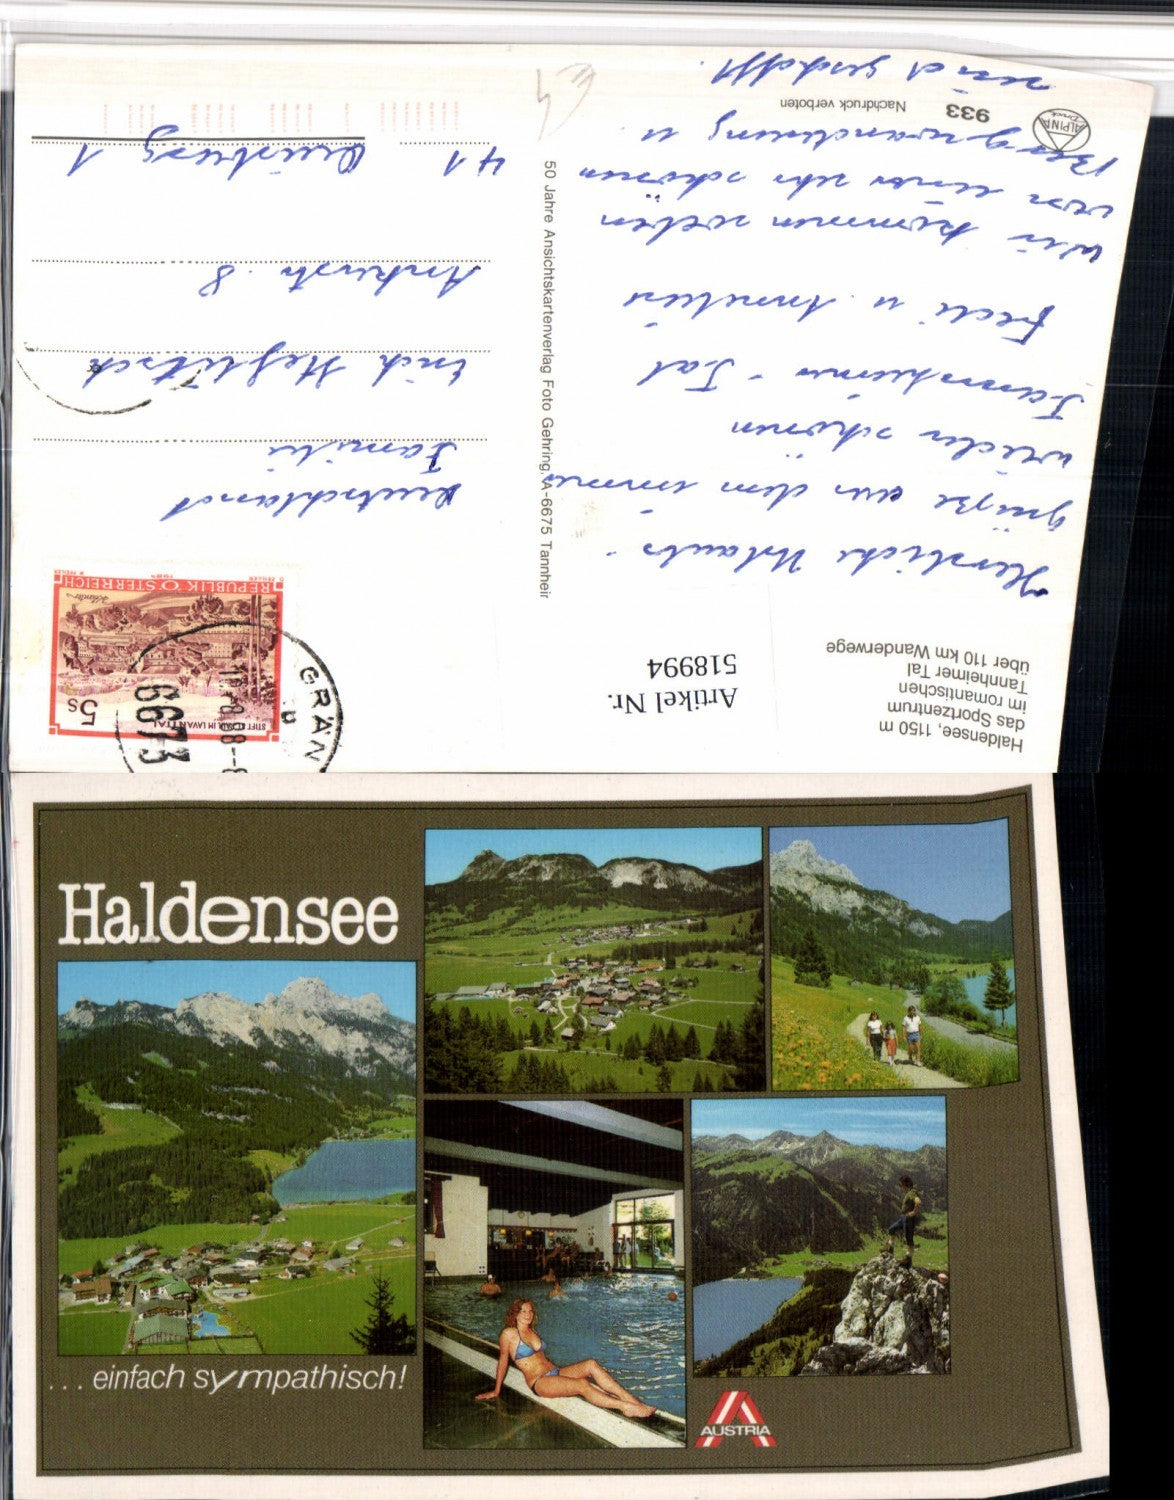 Haldensee, 1150 m
das Sportzentrum
im romantischen
Tannheimer Tal
über 110 km Wanderwege
Artikel Nr.
518994
Herzliche Urlaubs-
grüße aus dem immer
wieder schönen
Tannheimer-Tal
Fredi u. Annelies
Wir kommen soeben
von einer sehr schönen
Bergwanderung u.
sind geschafft.
933
Nachdruck verboten
ALPINA
Druck
50 Jahre Ansichtskartenverlag Foto Gehring, A-6675 Tannheim
5 S
STIFT ST. PAUL IM LAVANTTAL
REPUBLIK ÖSTERREICH
GRÄN
6673
b
Deutschland
Familie
Erich
Ankerstr. 8
41 Duisburg 1
Haldensee
... einfach sympathisch!
AUSTRIA